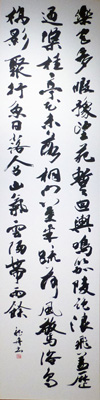 樂宮多暇豫望苑暫回輿鳴笳陵絕浪飛蓋歷
通渠桂亭花未落桐門葉半疏荷風驚浴鳥
橋影聚行魚日落含山氣雲歸帶雨餘